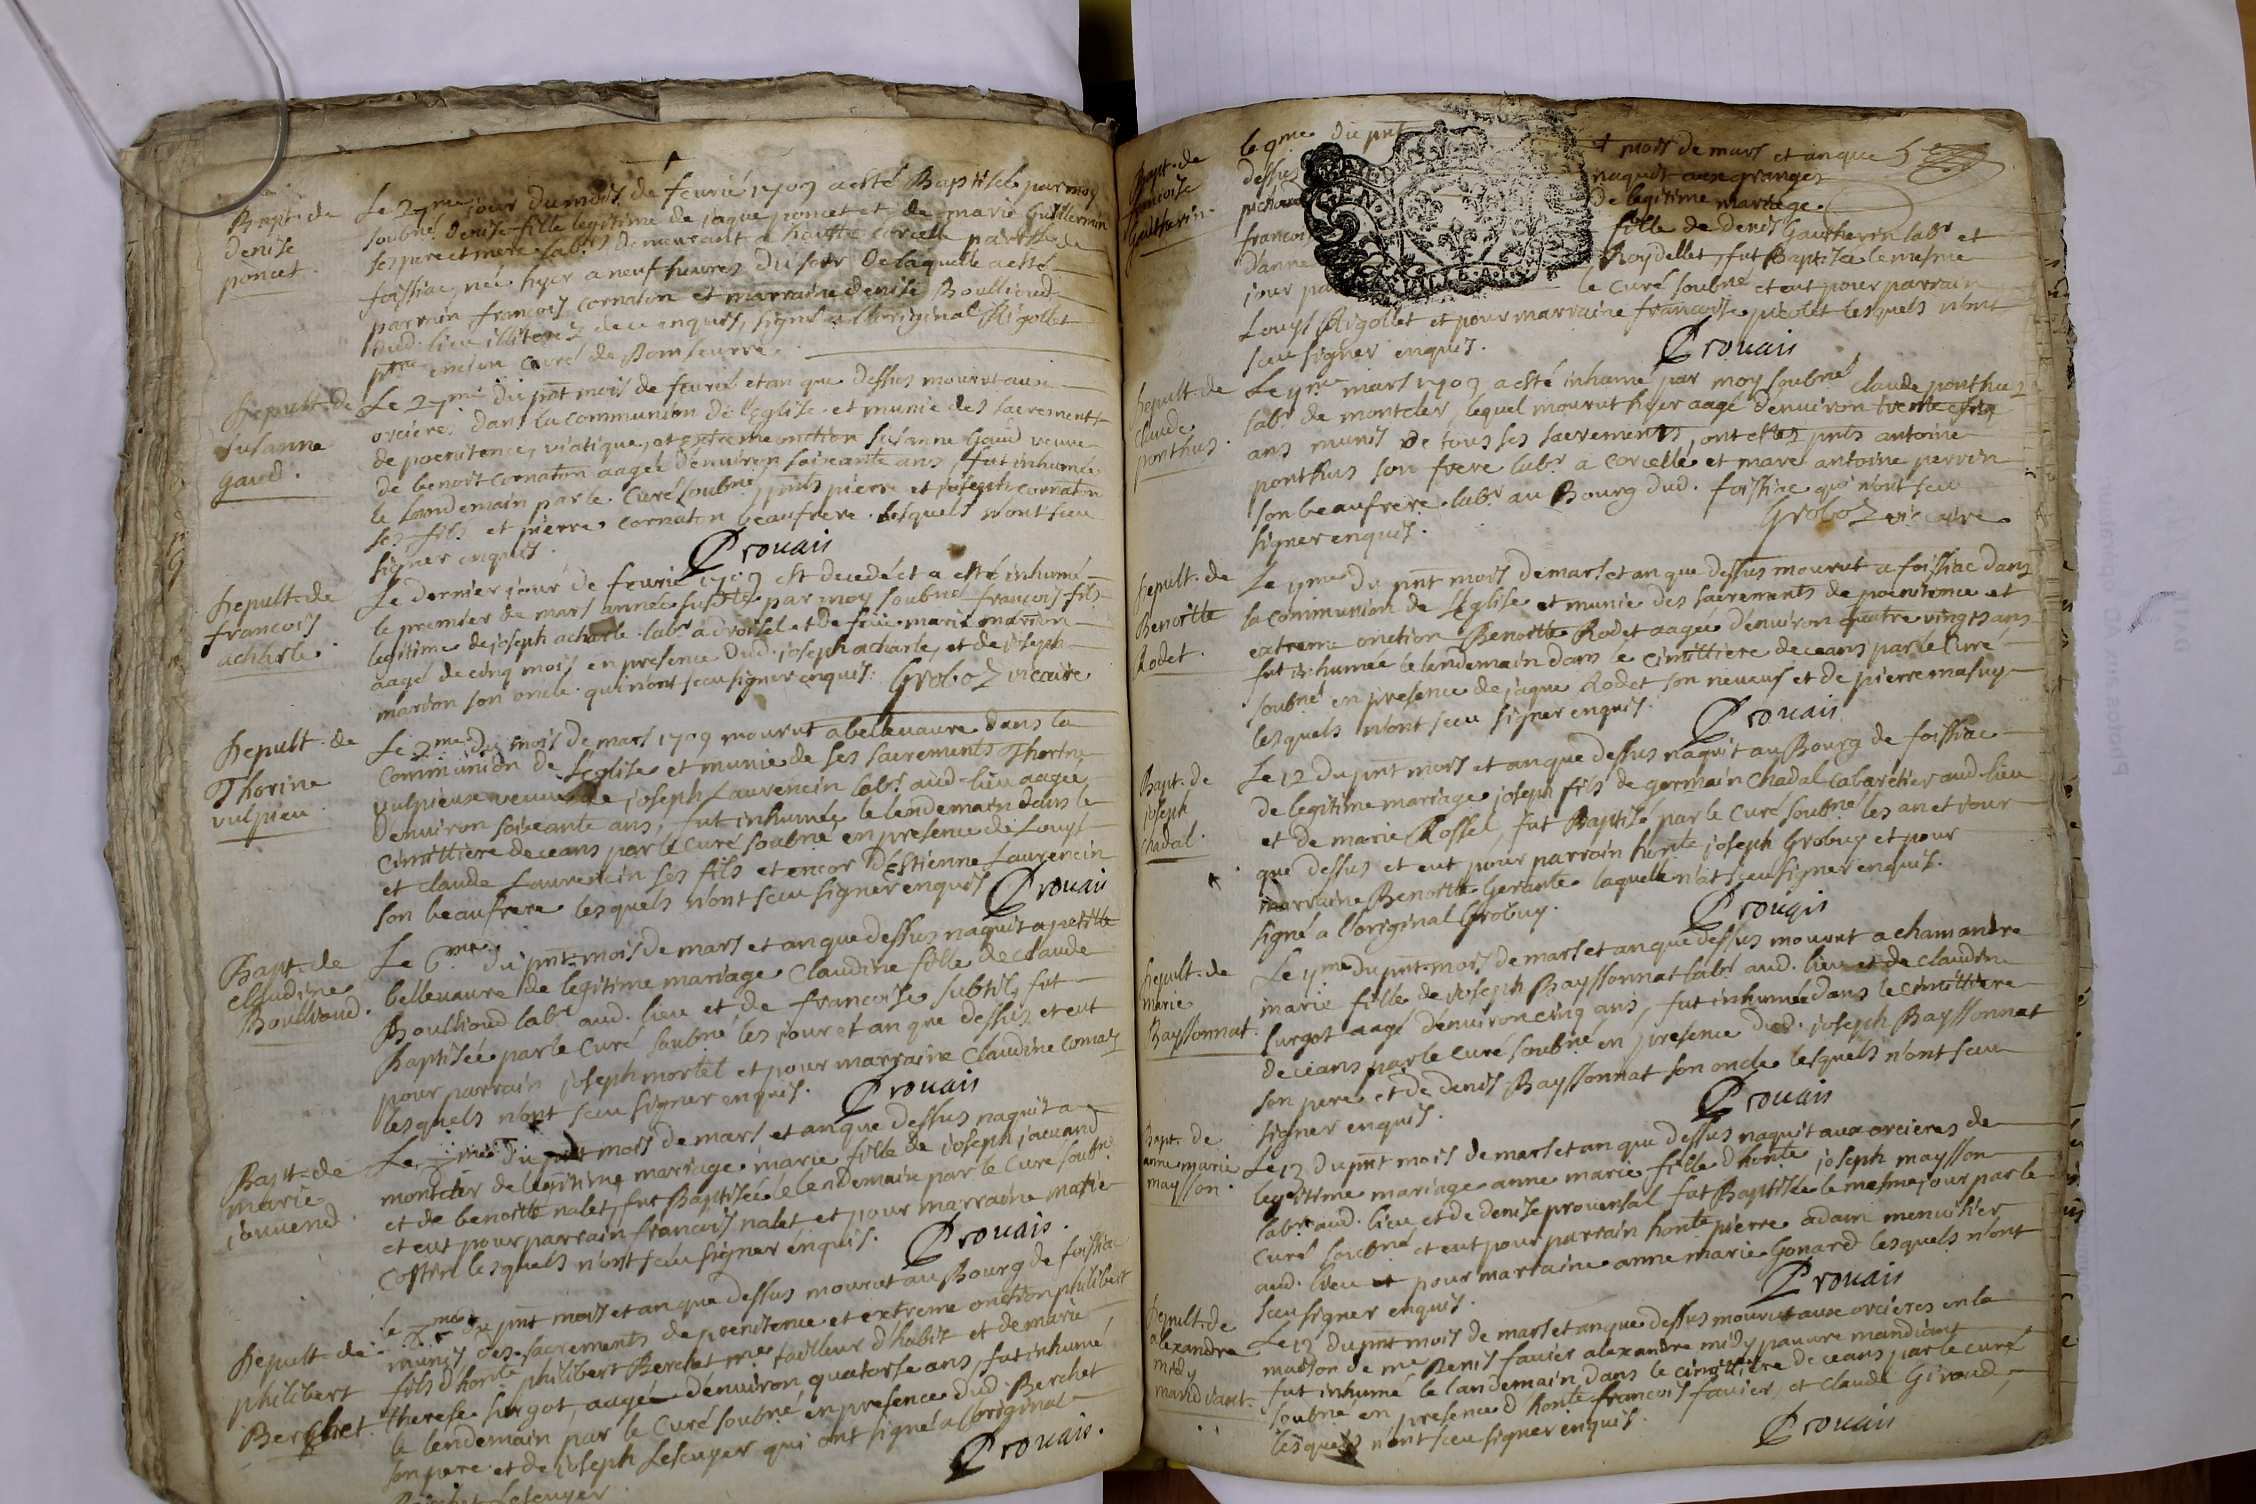 Bapt. de
denise
poncet.
Le 27me jour du mois de feurié 1709 a esté Baptisée par moy
soubné denise fille legitime de jaque poncet et de marie Guillermin
ses pere et mere labrs demeurant a hautte corcelle parroisse de
foissiac, née hyer a neuf heures du soir De laquelle a esté
parrain francois cornaton et marraine denise Boullioud
dud. lieu illiterez de ce enquis, signé a l'original Rigollet
ptre ancien curé de Domseurre.
Sepult. de
susanne
gaud.
Le 27me du pnt mois de feurié et an que dessus mourut aux
orcieres dans la communion de l'Eglise et munie des sacrements
de poenitence, viatique, et extreme onction susanne Gaud veuue
de benoit cornaton aagée d'enuiron soixante ans, fut inhumée
le landemain par le Curé soubné, pnts pierre et joseph cornaton
ses fils et pierre cornaton beaufrere lesquels n'ont sceu
signer enquis.
Prouais
Sepult. de
francois
acharle.
Le dernier jour de feurié 1709 est decedé et a esté inhumé
le premier de mars année susdte par moy soubné francois fils
legitime de joseph acharle labr a droisel et de feue marie marion
aagé de cinq mois en presence dud. joseph acharle, et de joseph
marion son oncle qui n'ont sceu signer enquis. Groboz vicaire
Sepult. de
Thorine
vulpieu.
Le 2me du mois de mars 1709 mourut a belleuaure dans la
Communion de l'eglise et munie de ses sacrements Thorine
vulpieux veuue de joseph Laurencin labr aud. lieu aagée
d'enuiron soixante ans, fut inhumée le lendemain dans le
cimittiere de ceans par le curé soubné en presence de Louys
et claude Laurencin ses fils et encor d'Estienne Laurencin
son beaufrere lesquels n'ont sceu signer enquis
Prouais
Bapt. de
claudine
Boullioud.
Le 6me du pnt mois de mars et an que dessus naquit a petitte
belleuaure de legitime mariage Claudine fille de claude
Boullioud labr aud. lieu et de francoise subtil, fut
Baptisée par le Curé soubné les jour et an que dessus et eut
pour parrain joseph mortel et pour marraine Claudine comas
lesquels n'ont sceu signer enquis.
Prouais
Bapt. de
marie
jouuend.
Le 7me du pnt mois de mars et an que dessus naquit a
monteler de legitime mariage marie fille de joseph jauuand
et de benoitte nalet, fut Baptisée le lendemain par le Curé soubné
et eut pour parrain francois nalet et pour marraine marie
Costin lesquels n'ont sceu signer enquis.
Prouais.
Sepult. de
philibert
Berchet.
le 7me du pnt mois et an que dessus mourut au Bourg de foissiac
munis des sacrements de poenitence et extreme onction philibert
fils d'honte philibert Berchet me tailleur d'habit et de marie
therese surgot, aagé d'enuiron quatorse ans, fut inhumé
le lendemain par le Curé soubné en presence dud. Berchet
son pere et de joseph Lescuyer qui ont signé a l'original
Prouais.
Berchet Lescuyer.
Bapt. de
francoise
Gautherin.
le 9me du pnt
mois de mars et an que
dessus
naquit aux granges
pichaud
de legitime mariage
francoise
fille de denis Gautherin labr et
d'anne
Roydellet, fut Baptisée le mesme
jour par
le Curé soubné et eut pour parrain
Louys Rigollet et pour marraine francoise picolet lesquels n'ont
sceu signer enquis.
Prouais
Sepult. de
claude
ponthus.
Le 9me mars 1709 a esté inhumé par moy soubné claude ponthus
labr de monteler, lequel mourut hyer aagé d'enuiron trente cinq
ans munis de tous ses sacrements, ont estez pnts antoine
ponthus son frere labr a corcelle et marc antoine perrin
son beaufrere labr au Bourg dud. foissiac qui n'ont sceu
signer enquis.
Groboz vicaire
Sepult. de
Benoitte
Rodet.
Le 11me du pnt mois de mars et an que dessus mourut a foissiac dans
la communion de l'Eglise et munie des sacrements de poenitence et
extreme onction Benoitte Rodet aagée d'enuiron quatre vingts ans
fut inhumée le lendemain dans le cimittiere de ceans par le Curé
soubné en presence de jaque Rodet son neueuf et de pierre masuy
lesquels n'ont sceu signer enquis.
Prouais
Bapt. de
joseph
Chadal.
Le 12 du pnt mois et an que dessus naquit au Bourg de foissiac
de legitime mariage joseph fils de germain Chadal cabaretier aud. lieu
et de marie Rossel, fut Baptisé par le Curé soubné les an et jour
que dessus et eut pour parrain honte joseph Grobuy et pour
marraine Benoitte Gerante laquelle n'at sceu signer enquis.
signé a l'original Grobuy.
Prouais
Sepult. de
marie
Bayssonnat.
Le 11me du pnt mois de mars et an que dessus mourut a chamandre
marie fille de joseph Bayssonnat labr aud. lieu et de claudine
surgot aagé d'enuiron cinq ans, fut inhumée dans le cimittiere
de ceans par le curé soubné en presence dud. joseph Bayssonnat
son pere et de denis Bayssonnat son oncle lesquels n'ont sceu
signer enquis.
Prouais
Bapt. de
anne marie
maysson.
Le 13 du pnt mois de mars et an que dessus naquit aux orcieres de
legitime mariage anne marie fille d'honte joseph maysson
labr aud. lieu et de denise prouersal, fut Baptisée le mesme jour par le
Curé soubné et eut pour parrain honte pierre adam menuisier
aud. lieu et pour marraine anne marie Gonard lesquels n'ont
sceu signer enquis.
Prouais
Sepult. de
alexandre
midy
mandiant.
Le 13 du pnt mois de mars et an que dessus mourut aux orcieres en la
maison de me Denis fauier alexandre midy pauure mandiant
fut inhumé le landemain dans le cimittiere de ceans par le curé
soubné en presence d'honte francois fauier, et claude Giroud
lesquels n'ont sceu signer enquis.
Prouais